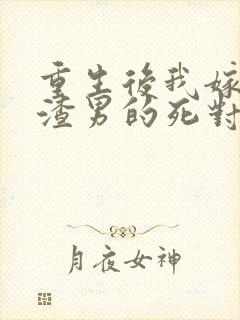 重生後我嫁
渣男的死對
月夜女神